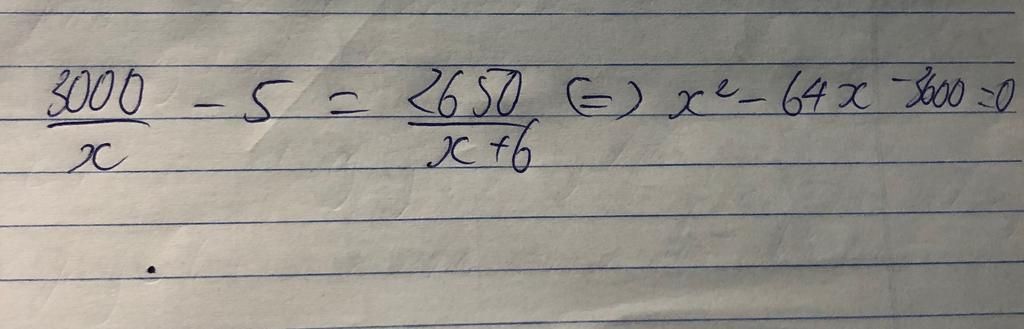 3000/x - 5 = 2650/(x+6) (=) x² - 64x - 3600 = 0